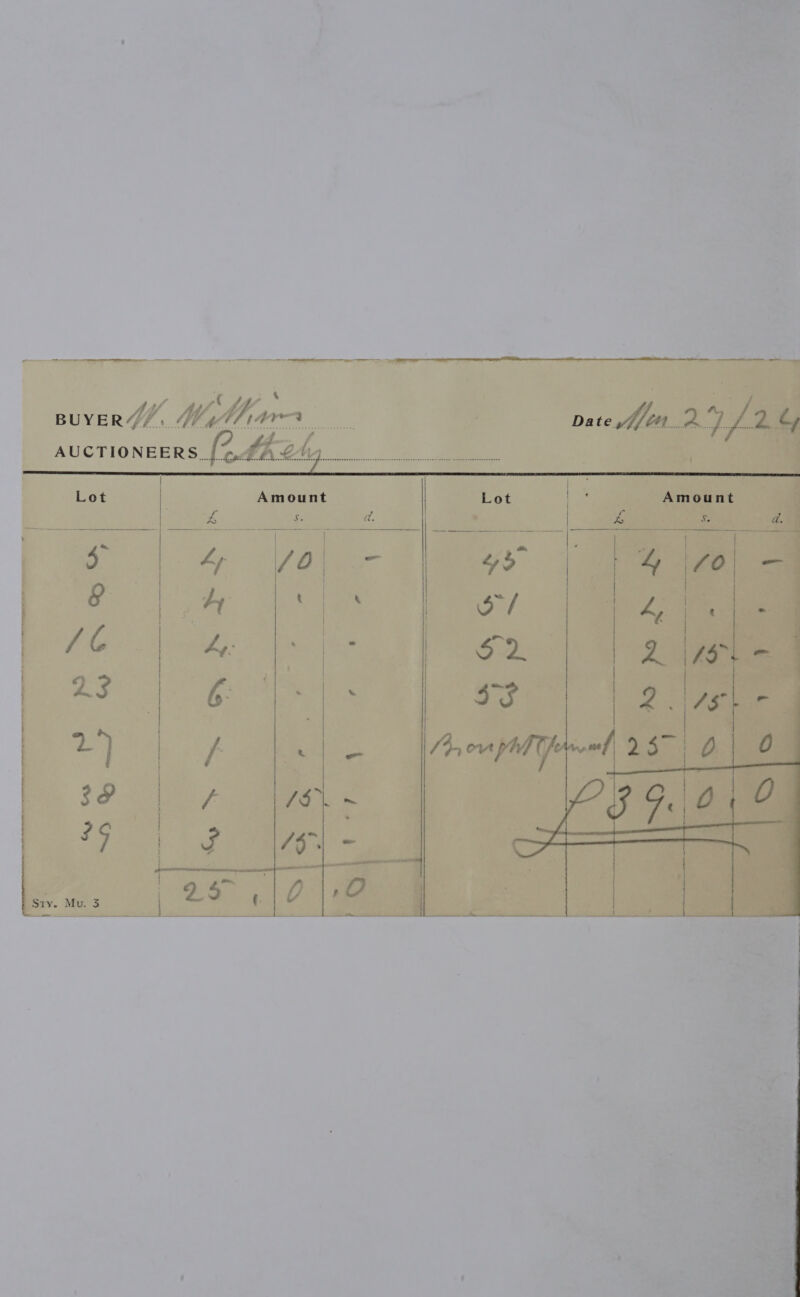 BUYER W. Williams Date 27/24
AUCTIONEERS
Lot Amount Lot Amount
£ s. d. £ s. d.
5 4 10 - 45 4 10 -
8 4 " " 51 4 " "
16 4 " " 52 2 15 -
23 6 " " 53 2 15 -
27 1 " - Brought Forward 25 0 0
38 1 15 - £39. 0. 0
39 3 15 -
25 0 0
Sty. Mu. 3